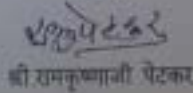 श्री रामकृष्णाजी पेटकर